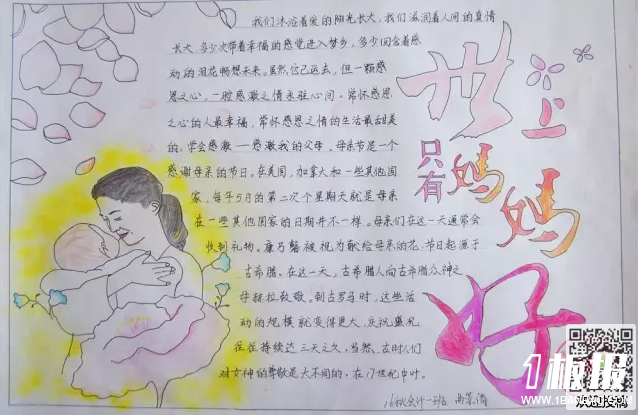 我们沐浴着爱的阳光长大，我们滋润着人间的真情
长大，多少次带着幸福的感觉进入梦乡，多少回含着感
动的泪花畅想未来。虽然，它已远去，但一颗感
恩之心，一腔感激之情永驻心间。常怀感恩
之心的人最幸福，常怀感恩之情的生活最甜美
的，学会感激——感激我的父母。母亲节是一个
感谢母亲的节日。在美国，加拿大和一些其他国
家，每年5月的第二个星期天就是母亲
在一些其他国家的日期并不一样。母亲们在这一天通常会
收到礼物。康乃馨被视为献给母亲的花。节日起源于
古希腊。在这一天，古希腊人向古希腊众神之
母赫拉致敬。到古罗马时，这些活
动的规模就变得更大，庆祝盛况
往往持续达三天之久。当然，古时人们
对女神的尊敬是大不同的。在17世纪中叶。
世上
只有
妈妈
好
1板报
WWW.1BANBAO.COM
欢迎投稿